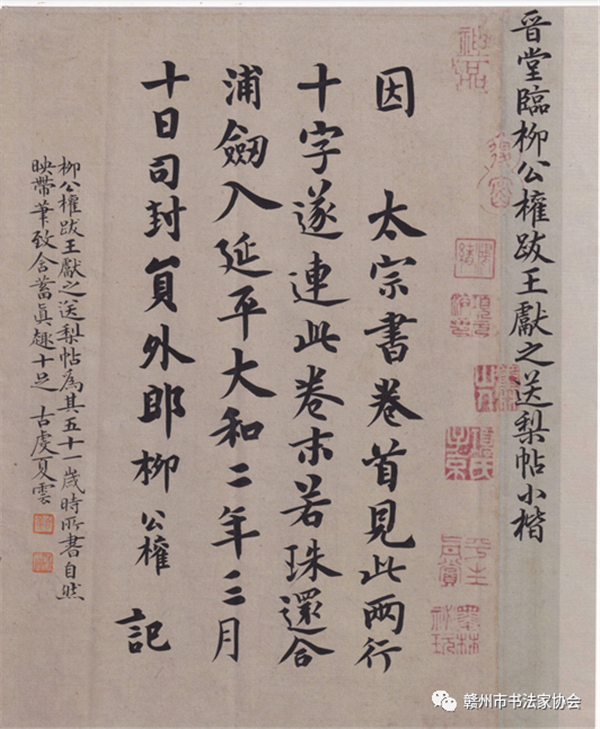 晋堂臨柳公權跋王獻之送梨帖小楷
因 太宗書卷首見此兩行
十字遂連此卷末若珠還合
浦劔入延平大和二年三月
十日司封員外郎柳公權 記
柳公權跋王獻之送梨帖為其五十一歲時所書自然
映帶筆致含蓄真趣十足 古虔夏雲
神品
項氏子京
平生真賞
墨林秘玩
赣州市书法家协会